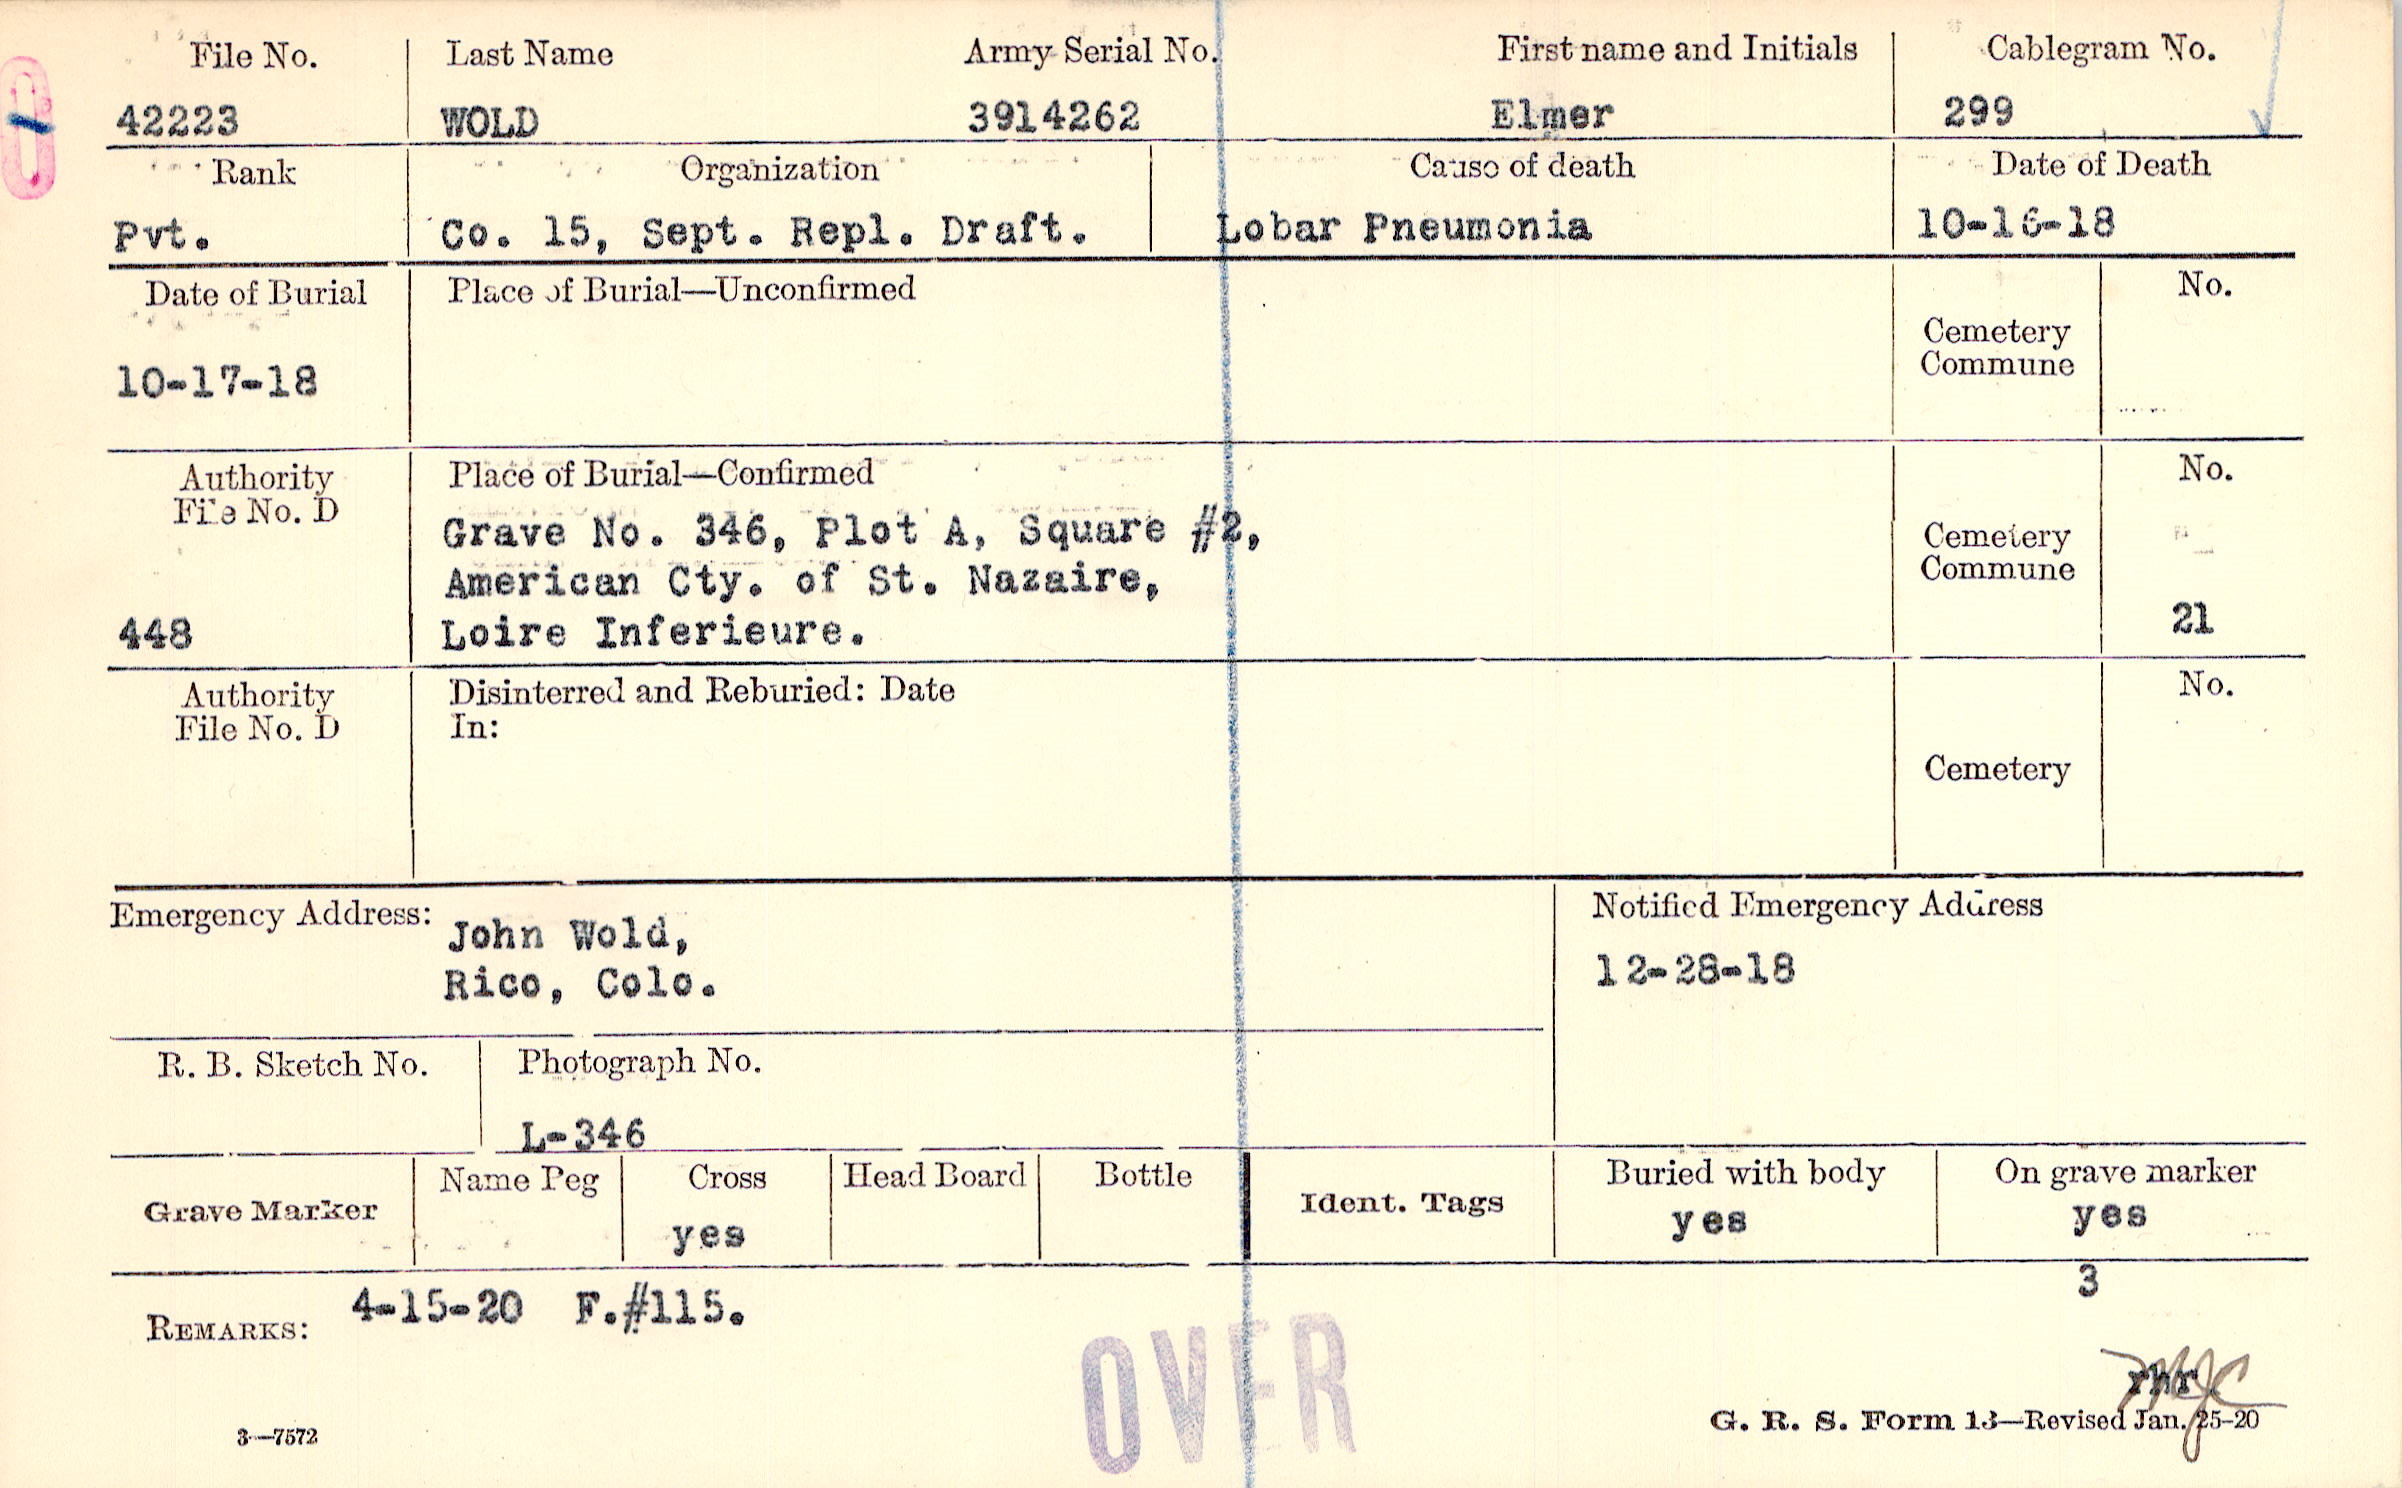 File No. Last Name Army Serial No. First name and Initials Cablegram No.
42223 WOLD 3914262 Elmer 299
Rank Organization Cause of death Date of Death
Pvt. Co. 15, Sept. Repl. Draft. Lobar Pneumonia 10-16-18
Date of Burial Place of Burial—Unconfirmed No.
Cemetery
Commune
10-17-18
Authority Place of Burial—Confirmed No.
File No. D
Grave No. 346, Plot A, Square #2, Cemetery
American Cty. of St. Nazaire, Commune
448 Loire Inferieure. 21
Authority Disinterred and Reburied: Date No.
File No. D In:
Cemetery
Emergency Address: Notified Emergency Address
John Wold,
Rico, Colo. 12-28-18
R. B. Sketch No. Photograph No.
L-346
Grave Marker Name Peg Cross Head Board Bottle Ident. Tags Buried with body On grave marker
yes yes yes
3
REMARKS: 4-15-20 F.#115.
OVER
rhr
G. R. S. Form 13—Revised Jan. 25-20
3—7572